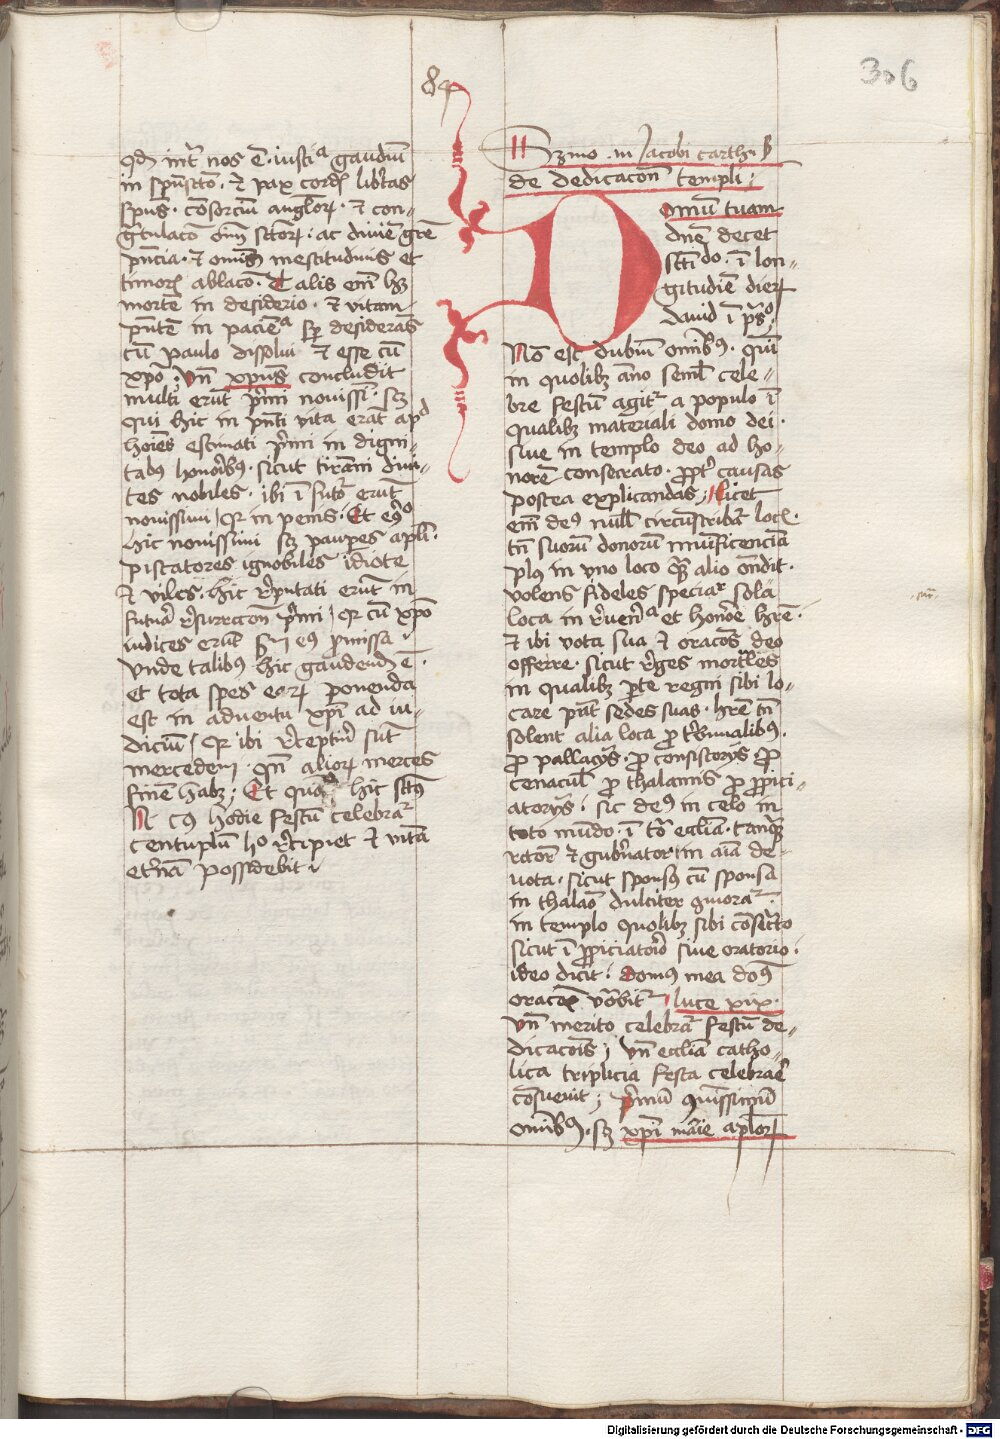 306
84
qd̄ int̄ nos ē · iusticᵃ gaudiū
in spūscto · et pax cordꝭ lib̄tas
spūs · cōsorciū angloꝝ · et con-
ḡtulacō oīm sctoꝝ · ac diuiē grē
pn̄cia · et omīs mestitudinis et
timorꝭ ablacō · Talis em̄ hꝫ
mortē in desiderio · et vitam
pn̄tē in paciēᵃ sꝑ desiderās
cū paulo dissolui et esse cū
xpō · Vn̄ xpūs concludit
multi erūt p̄mi nouissī · scꝫ
qui hic in pn̄ti vita erāt apᵈ
hoīes estimati p̄mi in digni-
tabꝰ honoribꝰ · sicut tirāni diui-
tes nobiles · ibi ī futꝰ erūt
nouissimi / qꝛ in penis · Et eꝯᵒ
hic nouissimi scꝫ paupes apl̄i ·
piscatores ignobiles idiote
et viles · hic r̄putati erūt in
futura r̄surrectōn p̄mi / qꝛ cū xpō
iudices erūt eꝰ p̄missa ·
vnde talibꝰ hic gaudendū ē ·
et tota spes eoꝝ ponenda
est in aduentu xp̄i ad iu-
diciū / qꝛ ibi r̄cepturi sūt
mercedem · qn̄ alioꝝ merces
finē habꝫ ; Et quō hic sctūs
N cꝰ hodie festū celebraᵗ
centuplū ho r̄cipiet et vitā
et̄nā possidebit ·
Sermo · m Jacobi carth ·
de dedicacōn templi ;
Domū tuam
dn̄e decet
sctī do · ī lon-
gitudiē dieꝝ
dauid ī psᵒ ·
Nō est dubiū omībꝰ · quī
in quolibꝫ āno semł cele-
bre festū agit̄ a populo ī
qualibꝫ materiali domo dei ·
siue in templo deo ad ho-
norē consecrato · ꝓpt̄ causas
postea explicandas ; Licet
em̄ deꝰ null circūscribat̄ locꝭ ·
tn̄ suorū donorū munificenciā
plꝰ in vno loco quā alio on̄dit ·
volens fideles speciaᵗ sola
loca in r̄uer̄ᵃ et honore hr̄e ·
et ibi vota sua et oracōes deo
offerre · sicut r̄ges mortales
in qualibꝫ p̄te regni sibi lo-
care pn̄t sedes suas · hr̄e tn̄
solent alia loca ꝓ t̄bunalibꝰ ·
ꝓ pallacijs · ꝓ consistorijs · ꝓ
cenacul̄ ꝓ thalamis ꝓ ꝓpici-
atorijs · sic deꝰ in celo in
toto mūdo · ī tō eccliā · tanqꝫ
rctor et gub̄nator in aīa de-
uota · sicut sponsꝰ cū sponsa
in thalāo dulciter ꝯmoraᵗ ·
in templo quolibꝫ sibi cōsecrato
sicut ī ꝓpiciatorio siue oratorio ·
ideo dicit · domꝰ mea domꝰ
oracōꝭ vocabit̄ luce xix ·
vn̄ merito celebraᵗ festū de-
dicacōis ; vn̄ eccliā catho-
lica triplicia festa celebrare
cōsueuit ; p̄mū ꝯmunissimū
omībꝰ · scꝫ xp̄i marie apl̄oꝝ
Digitalisierung gefördert durch die Deutsche Forschungsgemeinschaft - DFG